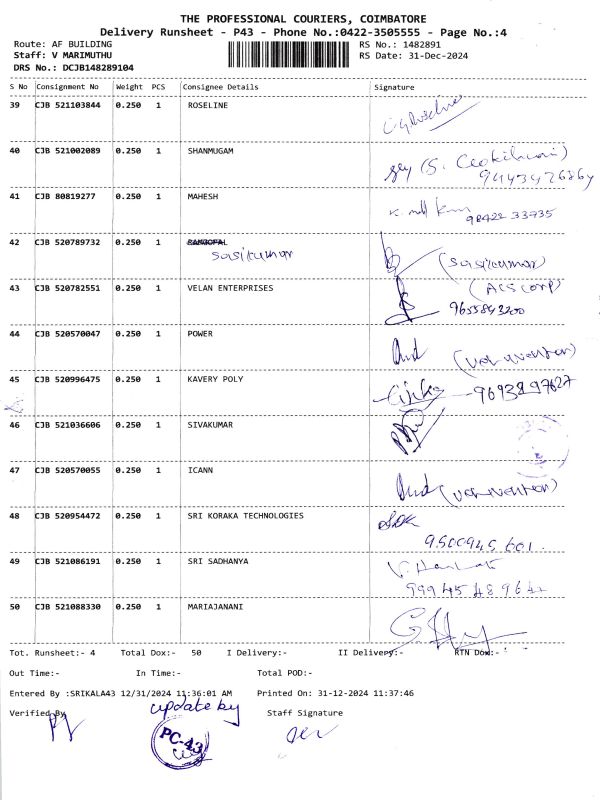 THE PROFESSIONAL COURIERS, COIMBATORE
Delivery Runsheet - P43 - Phone No.:0422-3505555 - Page No.:4
Route: AF BUILDING
RS No.: 1482891
Staff: V MARIMUTHU
RS Date: 31-Dec-2024
DRS No.: DCJB148289104
S No Consignment No Weight PCS Consignee Details Signature
39 CJB 521103844 0.250 1 ROSELINE
40 CJB 521002089 0.250 1 SHANMUGAM
41 CJB 80819277 0.250 1 MAHESH
98422 33735
42 CJB 520789732 0.250 1 RAMGOPAL
sasikumar (sasikumar)
43 CJB 520782551 0.250 1 VELAN ENTERPRISES (ACS Corp)
9655843200
44 CJB 520570047 0.250 1 POWER
45 CJB 520996475 0.250 1 KAVERY POLY
46 CJB 521036606 0.250 1 SIVAKUMAR
47 CJB 520570055 0.250 1 ICANN
48 CJB 520954472 0.250 1 SRI KORAKA TECHNOLOGIES
9500945 601.
49 CJB 521086191 0.250 1 SRI SADHANYA
50 CJB 521088330 0.250 1 MARIAJANANI
Tot. Runsheet:- 4 Total Dox:- 50 I Delivery:- II Delivery:- RTN Dox:-
Out Time:- In Time:- Total POD:-
Entered By :SRIKALA43 12/31/2024 11:36:01 AM Printed On: 31-12-2024 11:37:46
update by
Verified By Staff Signature
PC-43